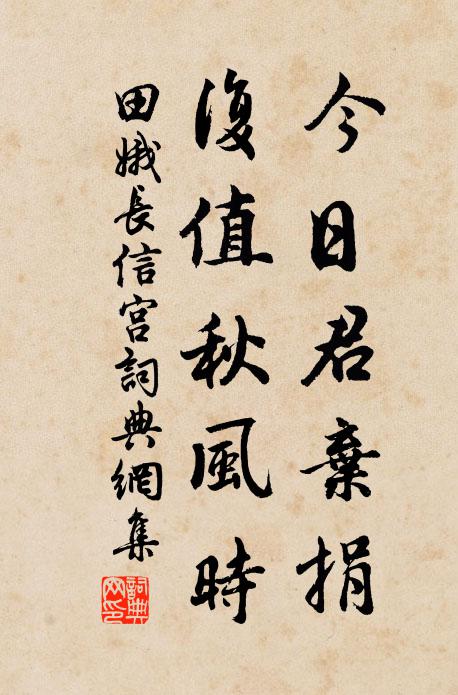 今日君棄捐
復值秋風時
田娥長信宮詞典網集
詞典網印